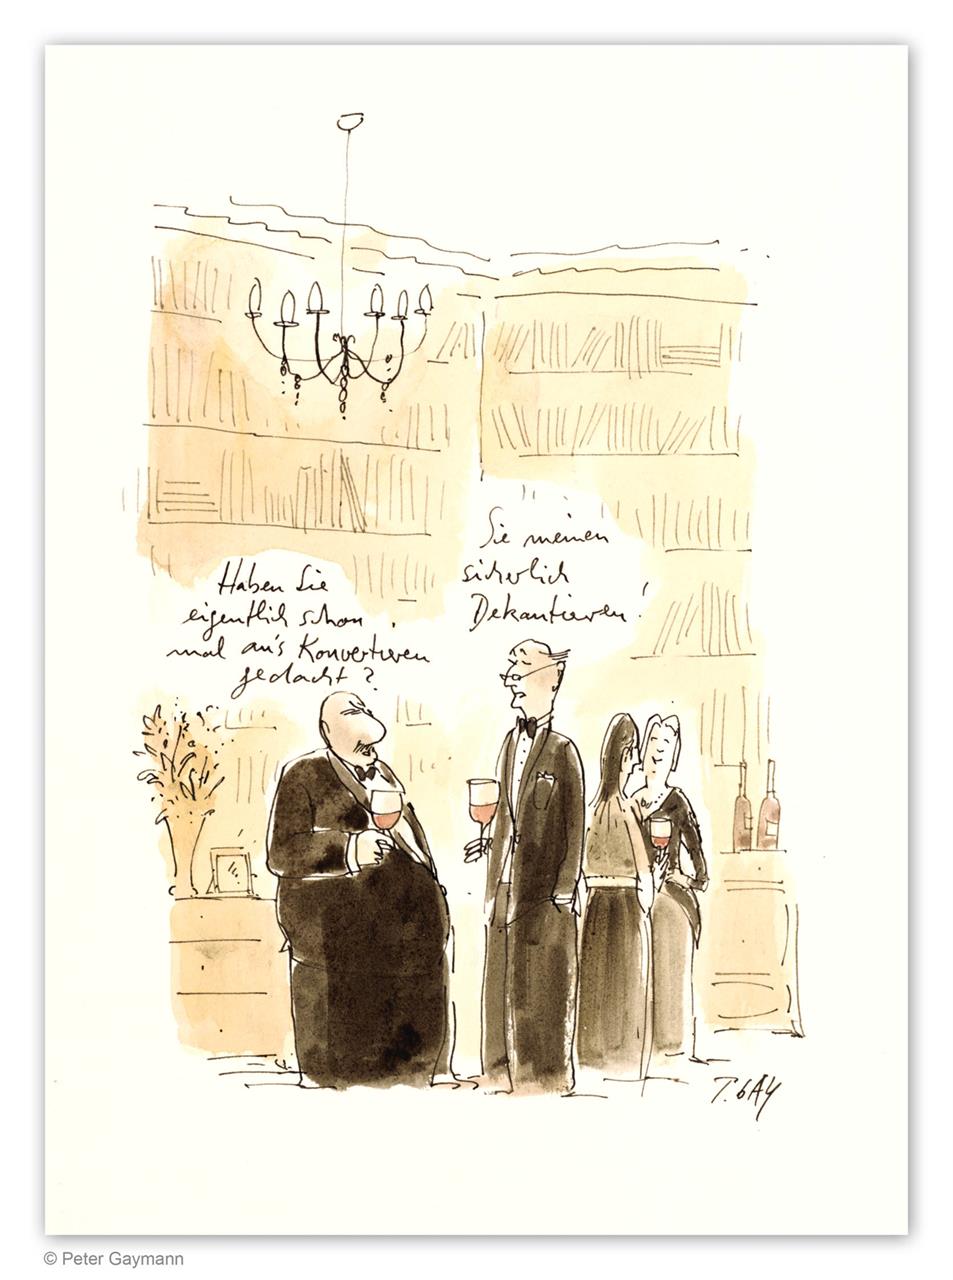 Haben Sie
eigentlich schon
mal an's Konvertieren
gedacht?
Sie meinen
sicherlich
Dekantieren!
P. GAY
© Peter Gaymann